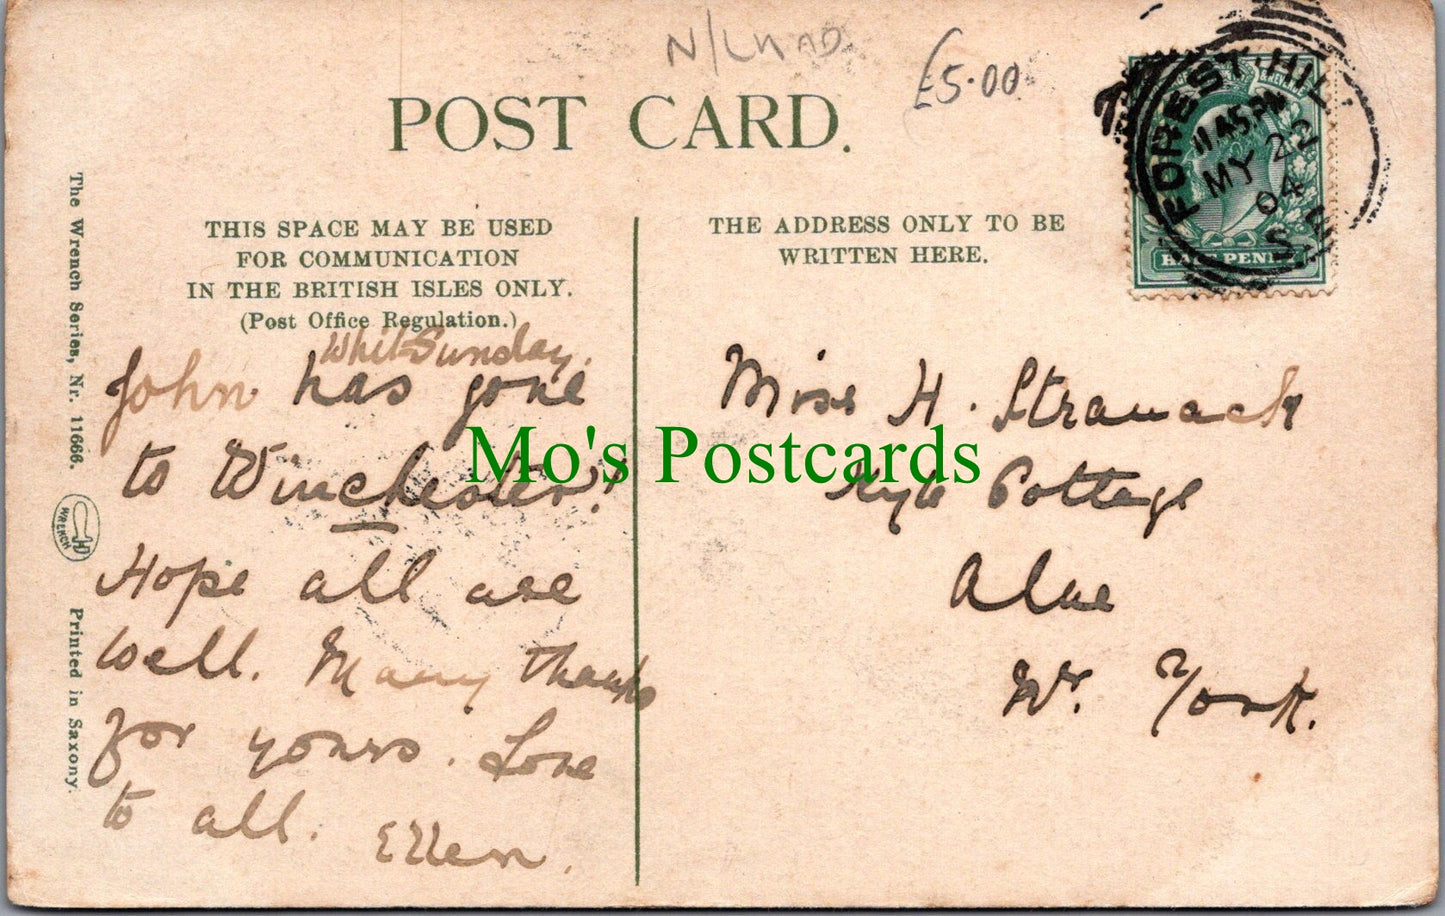 N/LHAD
£5.00
POST CARD.
FOREST HILL
11.45 PM
MY 22
04
S.E
HALFPENNY
THIS SPACE MAY BE USED
FOR COMMUNICATION
IN THE BRITISH ISLES ONLY.
(Post Office Regulation.)
THE ADDRESS ONLY TO BE
WRITTEN HERE.
The Wrench Series, Nr. 11666.
WRENCH
Printed in Saxony.
Whit-Sunday.
John has gone
to Winchester!
Hope all are
well. Many thanks
for yours. Love
to all. Ellen.
Miss H. Stranack
Kyle Cottage
Alne
Nr. York.
Mo's Postcards